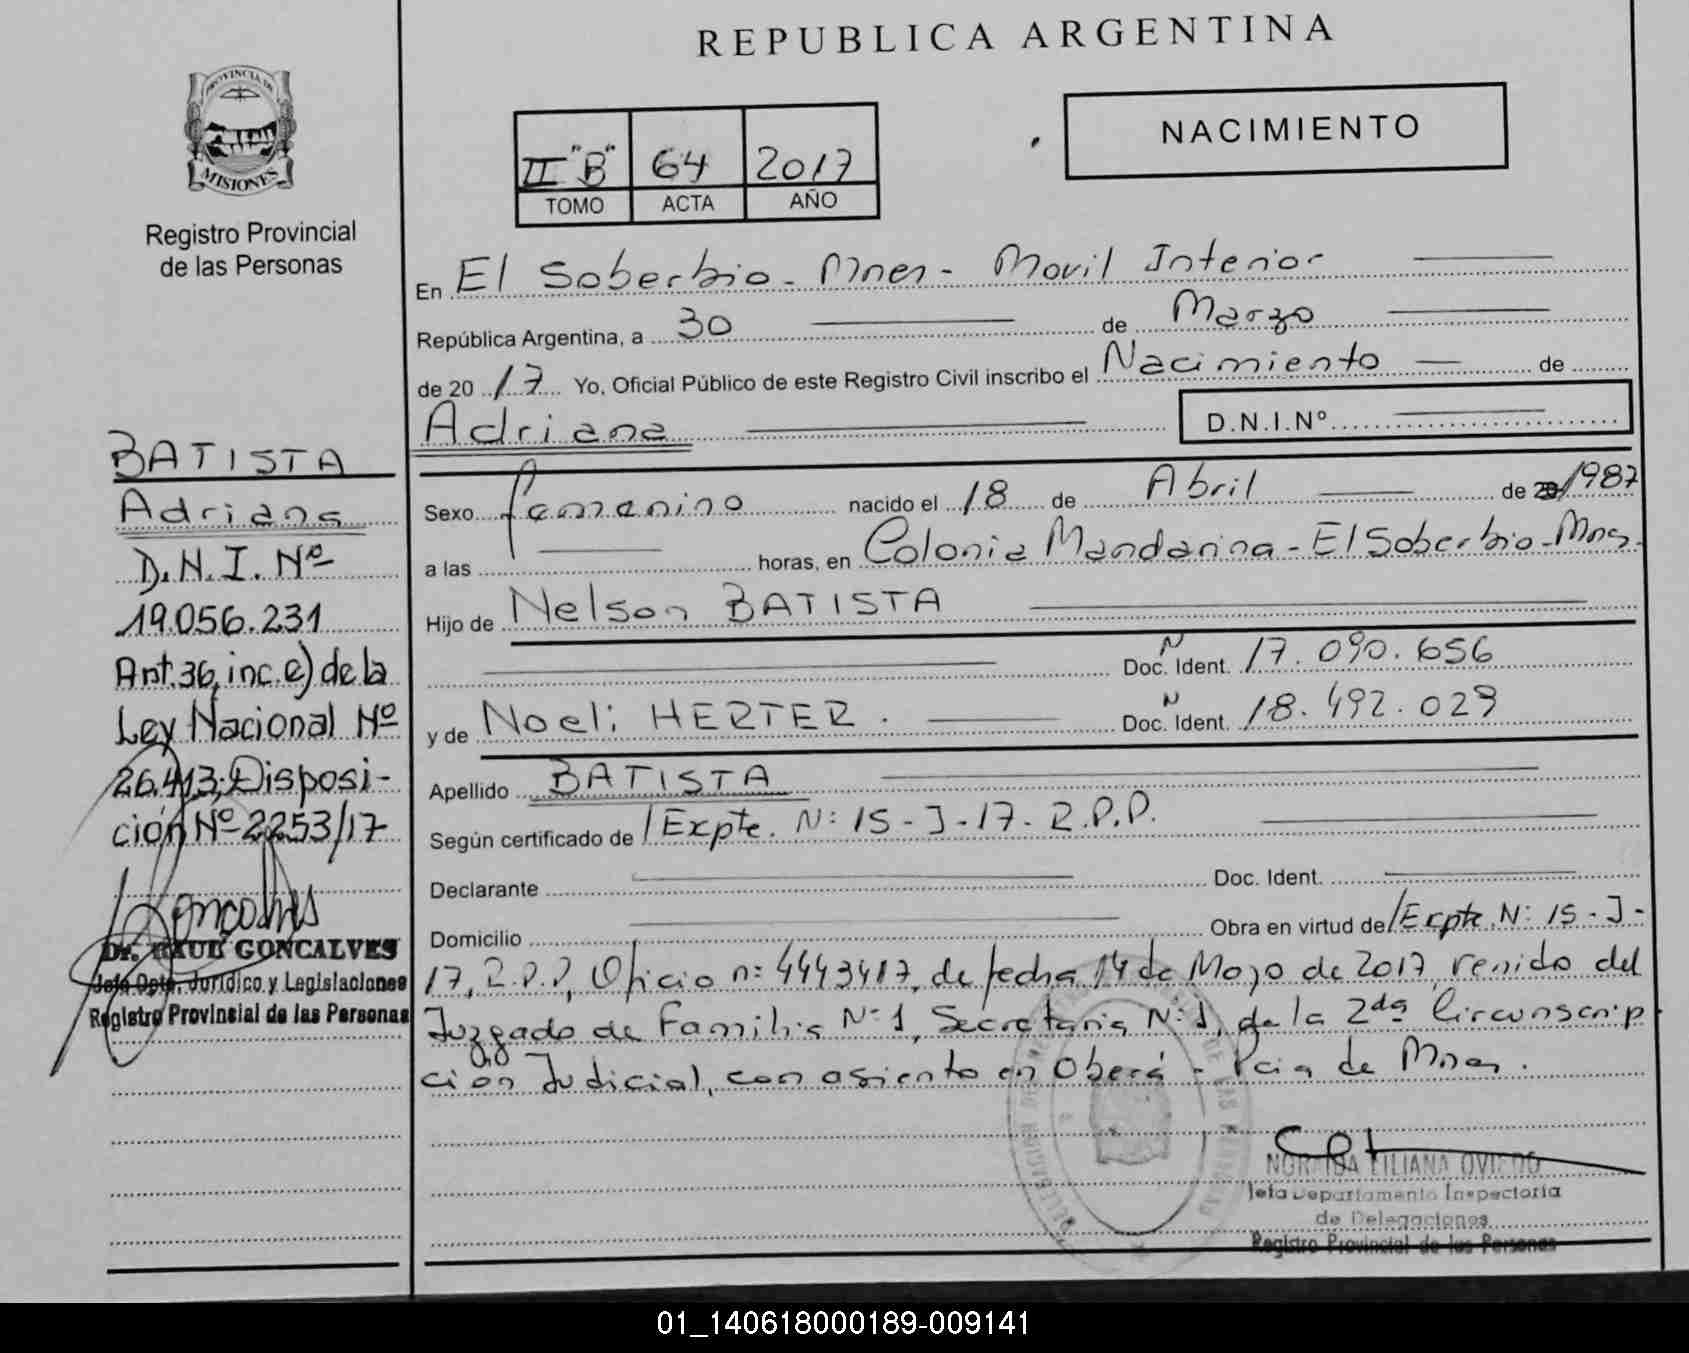 REPUBLICA ARGENTINA
PROVINCIA DE
MISIONES
Registro Provincial
de las Personas
NACIMIENTO
II "B" 64 2017
TOMO ACTA AÑO
En El Soberbio - Mnes - Movil Interior
República Argentina, a 30 de Marzo
de 20 17 Yo, Oficial Público de este Registro Civil inscribo el Nacimiento de
Adriana D.N.I.Nº
BATISTA
Adriana
D.N.I. Nº
19.056.231
Art.36, inc. e) de la
Ley Nacional Nº
26.413; Disposi-
ción Nº 2253/17
Dr. RAUL GONCALVES
Jefe Dpto. Jurídico y Legislaciones
Registro Provincial de las Personas
Sexo femenino nacido el 18 de Abril de 20 /1987
a las horas, en Colonia Mandarina - El Soberbio - Mnes.
Hijo de Nelson BATISTA
Doc. Ident. N 17.090.656
y de Noeli HERTER. Doc. Ident. N 18.492.029
Apellido BATISTA
Según certificado de /Expte. N: 15-J-17. R.P.P.
Declarante Doc. Ident.
Domicilio Obra en virtud de /Expte. N: 15-J-
17, R.P.P, Oficio n: 4443417, de fecha 14 de Mayo de 2017, venido del
Juzgado de Familia N:1, Secretaria N:1, de la 2da Circunscrip
cion Judicial, con asiento en Oberá - Pcia de Mnes.
NORMA LILIANA OVIEDO
Jefa Departamento Inspectoria
de Delegaciones
Registro Provincial de las Personas
01_140618000189-009141